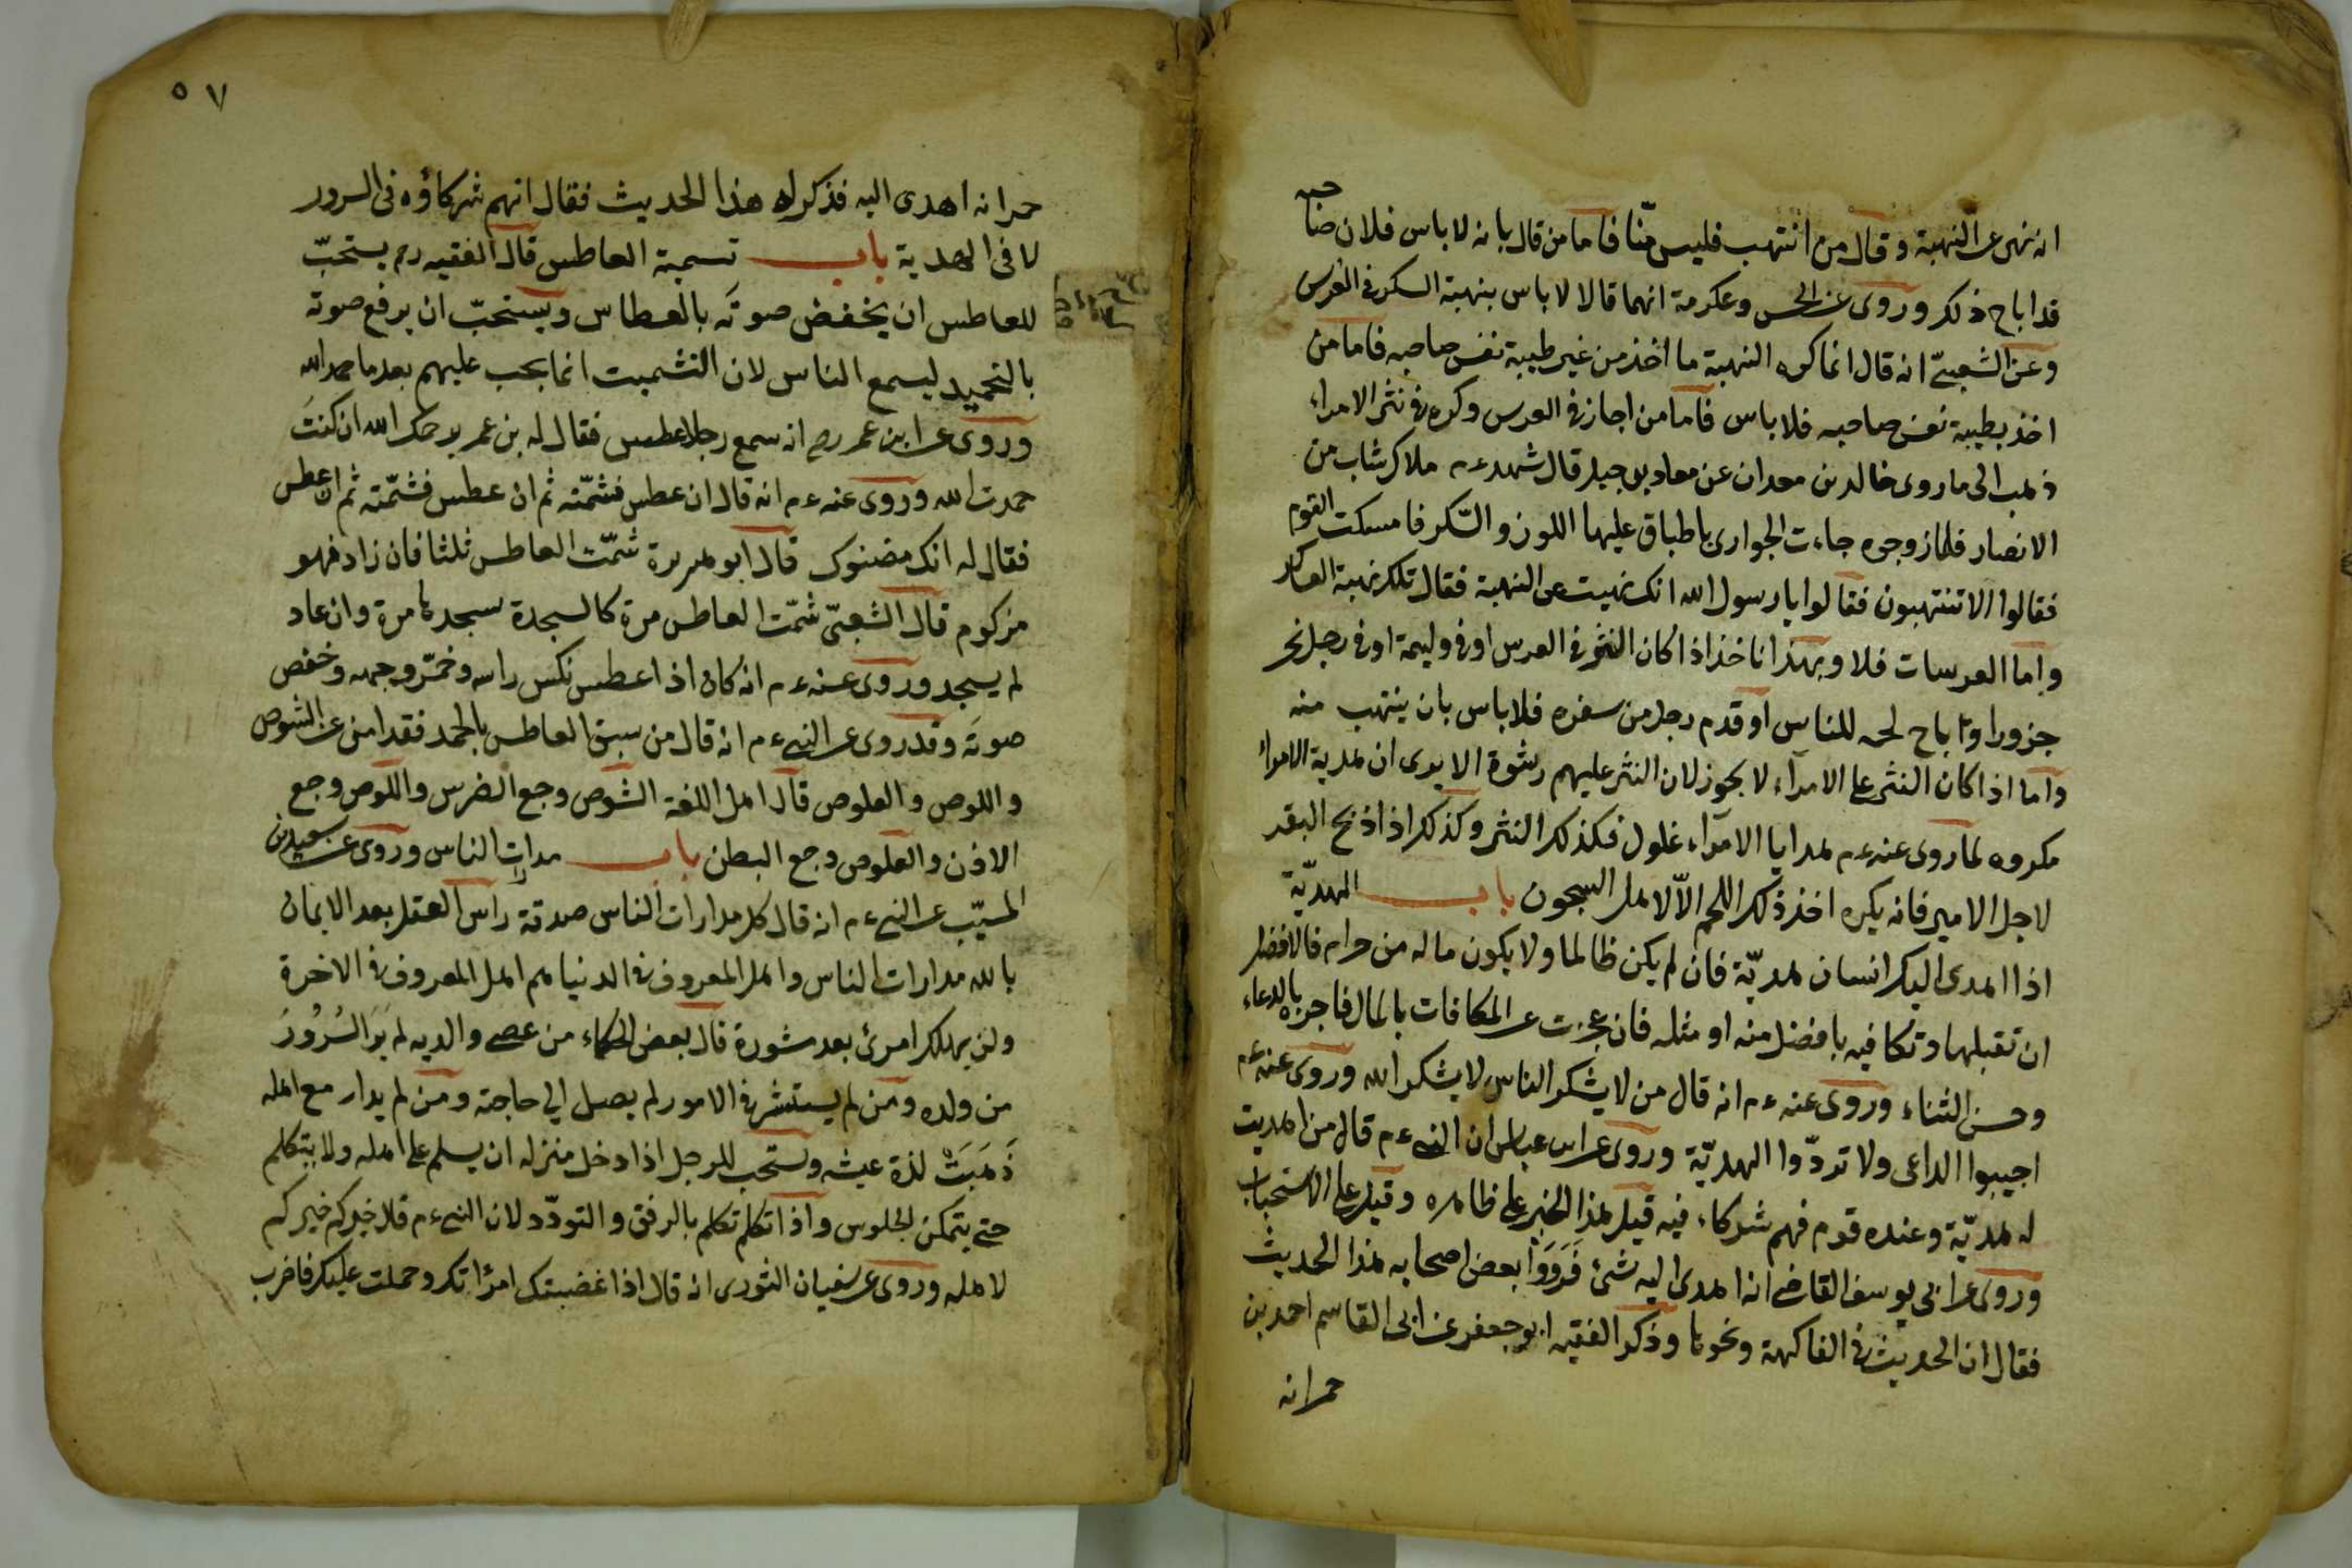 انه نهى عن النهبة وقال من انتهب فليس منّا فاما من قال بانه لا باس فلان صاحبه
قد اباح ذلك وروى عن الحسن وعكرمة انهما قالا لا باس بنهبة السكر فى العرس
وعن الشعبىّ انه قال انما كره النهبة ما اخذ من غير طيبة نفس صاحبه فاما من
اخذ بطيبة نفس صاحبه فلا باس فاما من اجاز فى العرس وكره فى نثر الامراء
ذهب الى ما روى خالد بن معدان عن معاذ بن جبل قال شهد ءم ملاك شاب من
الانصار فلما زوجوه جاءت الجوارى باطباق عليها اللوز والسّكر فامسكت القوم
فقالوا الا تنتهبون فقالوا يا رسول الله انك نهيت عن النهبة فقال تلك نهبة العساكر
واما العرسات فلا وبهذا ناخذ اذا كان النثر فى العرس او فى وليمة او فى رجل نحر
جزورا واباح لحمه للناس او قدم رجل من سفره فلا باس بان ينتهب منه
واما اذا كان النثر على الامرآء لا يجوز لان النثر عليهم رشوة الا يرى ان هدية الامراء
مكروه لما روى عنه ءم هدايا الامرآء غلول فكذلك النثر وكذلك اذا ذبح البقر
لاجل الامير فانه يكره اخذ ذلك اللحم الاّ لاهل السجون باب الهديّة
اذا اهدى اليك انسان هديّة فان لم يكن ظالما ولا يكون ماله من حرام فالافضل
ان تقبلها وتكافيه بافضل منه او مثله فان عجزت عن المكافات بالمال فاجزه بالدعاء
وحسن الثناء وروى عنه ءم انه قال من لا يشكر الناس لا يشكر الله وروى عنه ءم
اجيبوا الداعى ولا تردّوا الهديّة وروى عن ابن عباس ان النبى ءم قال من اهديت
له هديّة وعنده قوم فهم شركاء فيه قيل هذا الخبر على ظاهره وقيل على الاستحباب
وروى عن ابى يوسف القاضى انه اهدى اليه شئ فَرَوَوْا بعض اصحابه هذا الحديث
فقال ان الحديث فى الفاكهة ونحوها وذكر الفقيه ابو جعفر عن ابى القاسم احمد بن
حمرانه
٥٧
حمرانه اهدى اليه فذكر له هذا الحديث فقال انهم شركاؤه فى السرور
لا فى الهدية باب تسمية العاطس قال الفقيه رح يستحبّ
للعاطس ان يخفض صوتَه بالعطاس ويستحبّ ان يرفع صوته
بالتحميد ليسمع الناس لان التشميت انما يجب عليهم بعد ما حمد الله
وروى عن ابن عمر رض انه سمع رجلا عطس فقال له بن عمر يرحمك الله ان كنتَ
حمدت الله وروى عنه ءم انه قال ان عطس فشمّته ثم ان عطس فشمّته ثم ان عطس
فقال له انك مضنوك قال ابو هريرة شمّت العاطس ثلثا فان زاد فهو
مزكوم قال الشعبىّ شمّت العاطس مرة كالسجدة سجدها مرة وان عاد
لم يسجد وروى عنه ءم انه كان اذا عطس نكس راسه وخمّر وجهه وخفض
صوتَه وقد روى عن النبى ءم انه قال من سبق العاطس بالحمد فقد امن عن الشوص
واللوص والعلوص قال اهل اللغة الشوص وجع الضرس واللوص وجع
الاذن والعلوص وجع البطن باب مدارات الناس وروى عن سعيد بن
المسيّب عن النبى ءم انه قال كل مدارات الناس صدقة راس العقل بعد الايمان
بالله مدارات الناس واهل المعروف فى الدنيا هم اهل المعروف فى الاخرة
ولن يهلك امرئ بعد مشورة قال بعض الحكماء من عصى والديه لم يَرَ السُرُورَ
من ولده ومن لم يستشر فى الامور لم يصل الى حاجته ومن لم يدار مع اهله
ذَهَبَتْ لذة عيشه ويستحب للرجل اذا دخل منزله ان يسلم على اهله ولا يتكلم
حتى يتمكن لجلوس واذا تكلم تكلم بالرفق والتودّد لان النبى ءم قال خيركم خيركم
لاهله وروى عن سفيان الثورى انه قال اذا غضبتك امرأتك وحملت عليك فاضرب